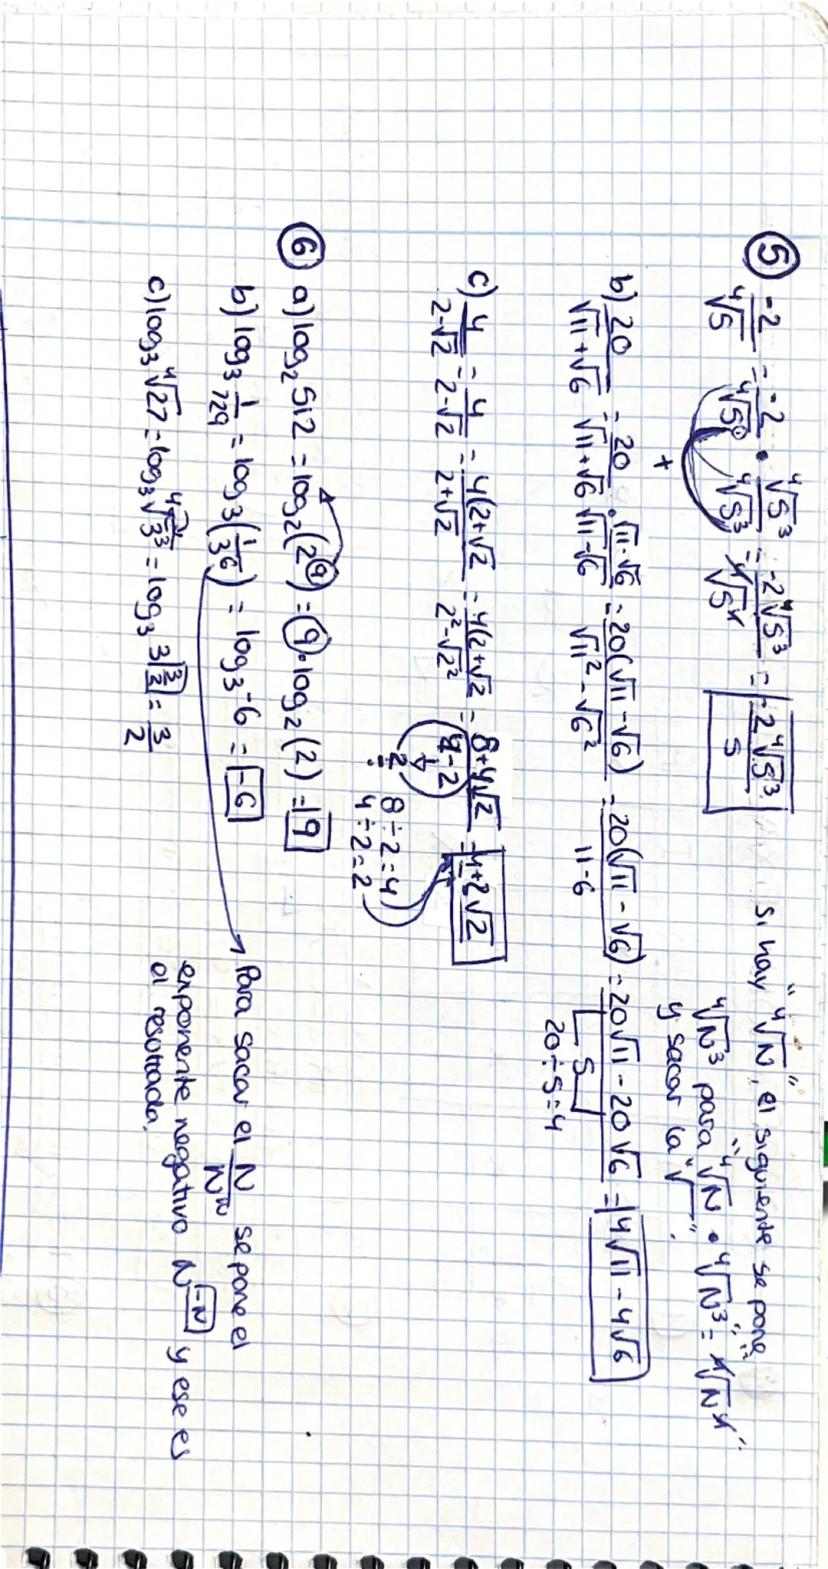 ⑤ -2/⁴√5 = -2/⁴√5 • ⁴√5³/⁴√5³ = -2⁴√5³/⁴√5⁴ = -2⁴√5³/5
+
Si hay "⁴√N", el siguiente se pone
⁴√N³ para "⁴√N • ⁴√N³" = "⁴√N⁴"
y sacar la "√".
b) 20/√11+√6 = 20/√11+√6 · √11-√6/√11-√6 = 20(√11-√6)/√11²-√6² = 20(√11-√6)/11-6 = 20√11-20√6/5 = 4√11-4√6
20÷5=4
c) 4/2-√2 = 4/2-√2 = 4(2+√2/2+√2 = 4(2+√2/2²-√2² = 8+4√2/4-2 = 4+2√2
↓
2
÷
8÷2=4
4÷2=2
⑥ a) log₂512 = log₂(2⁹) = 9·log₂(2) = 9
b) log₃ 1/729 = log₃(1/3⁶) = log₃-6 = -6
→ Para sacar el N/Nᴺ se pone el
exponente negativo N⁻ᴺ y ese es
el resultado.
c) log₃ ⁴√27 = log₃ ⁴√3³ = log₃ 3^3/2 = 3/2